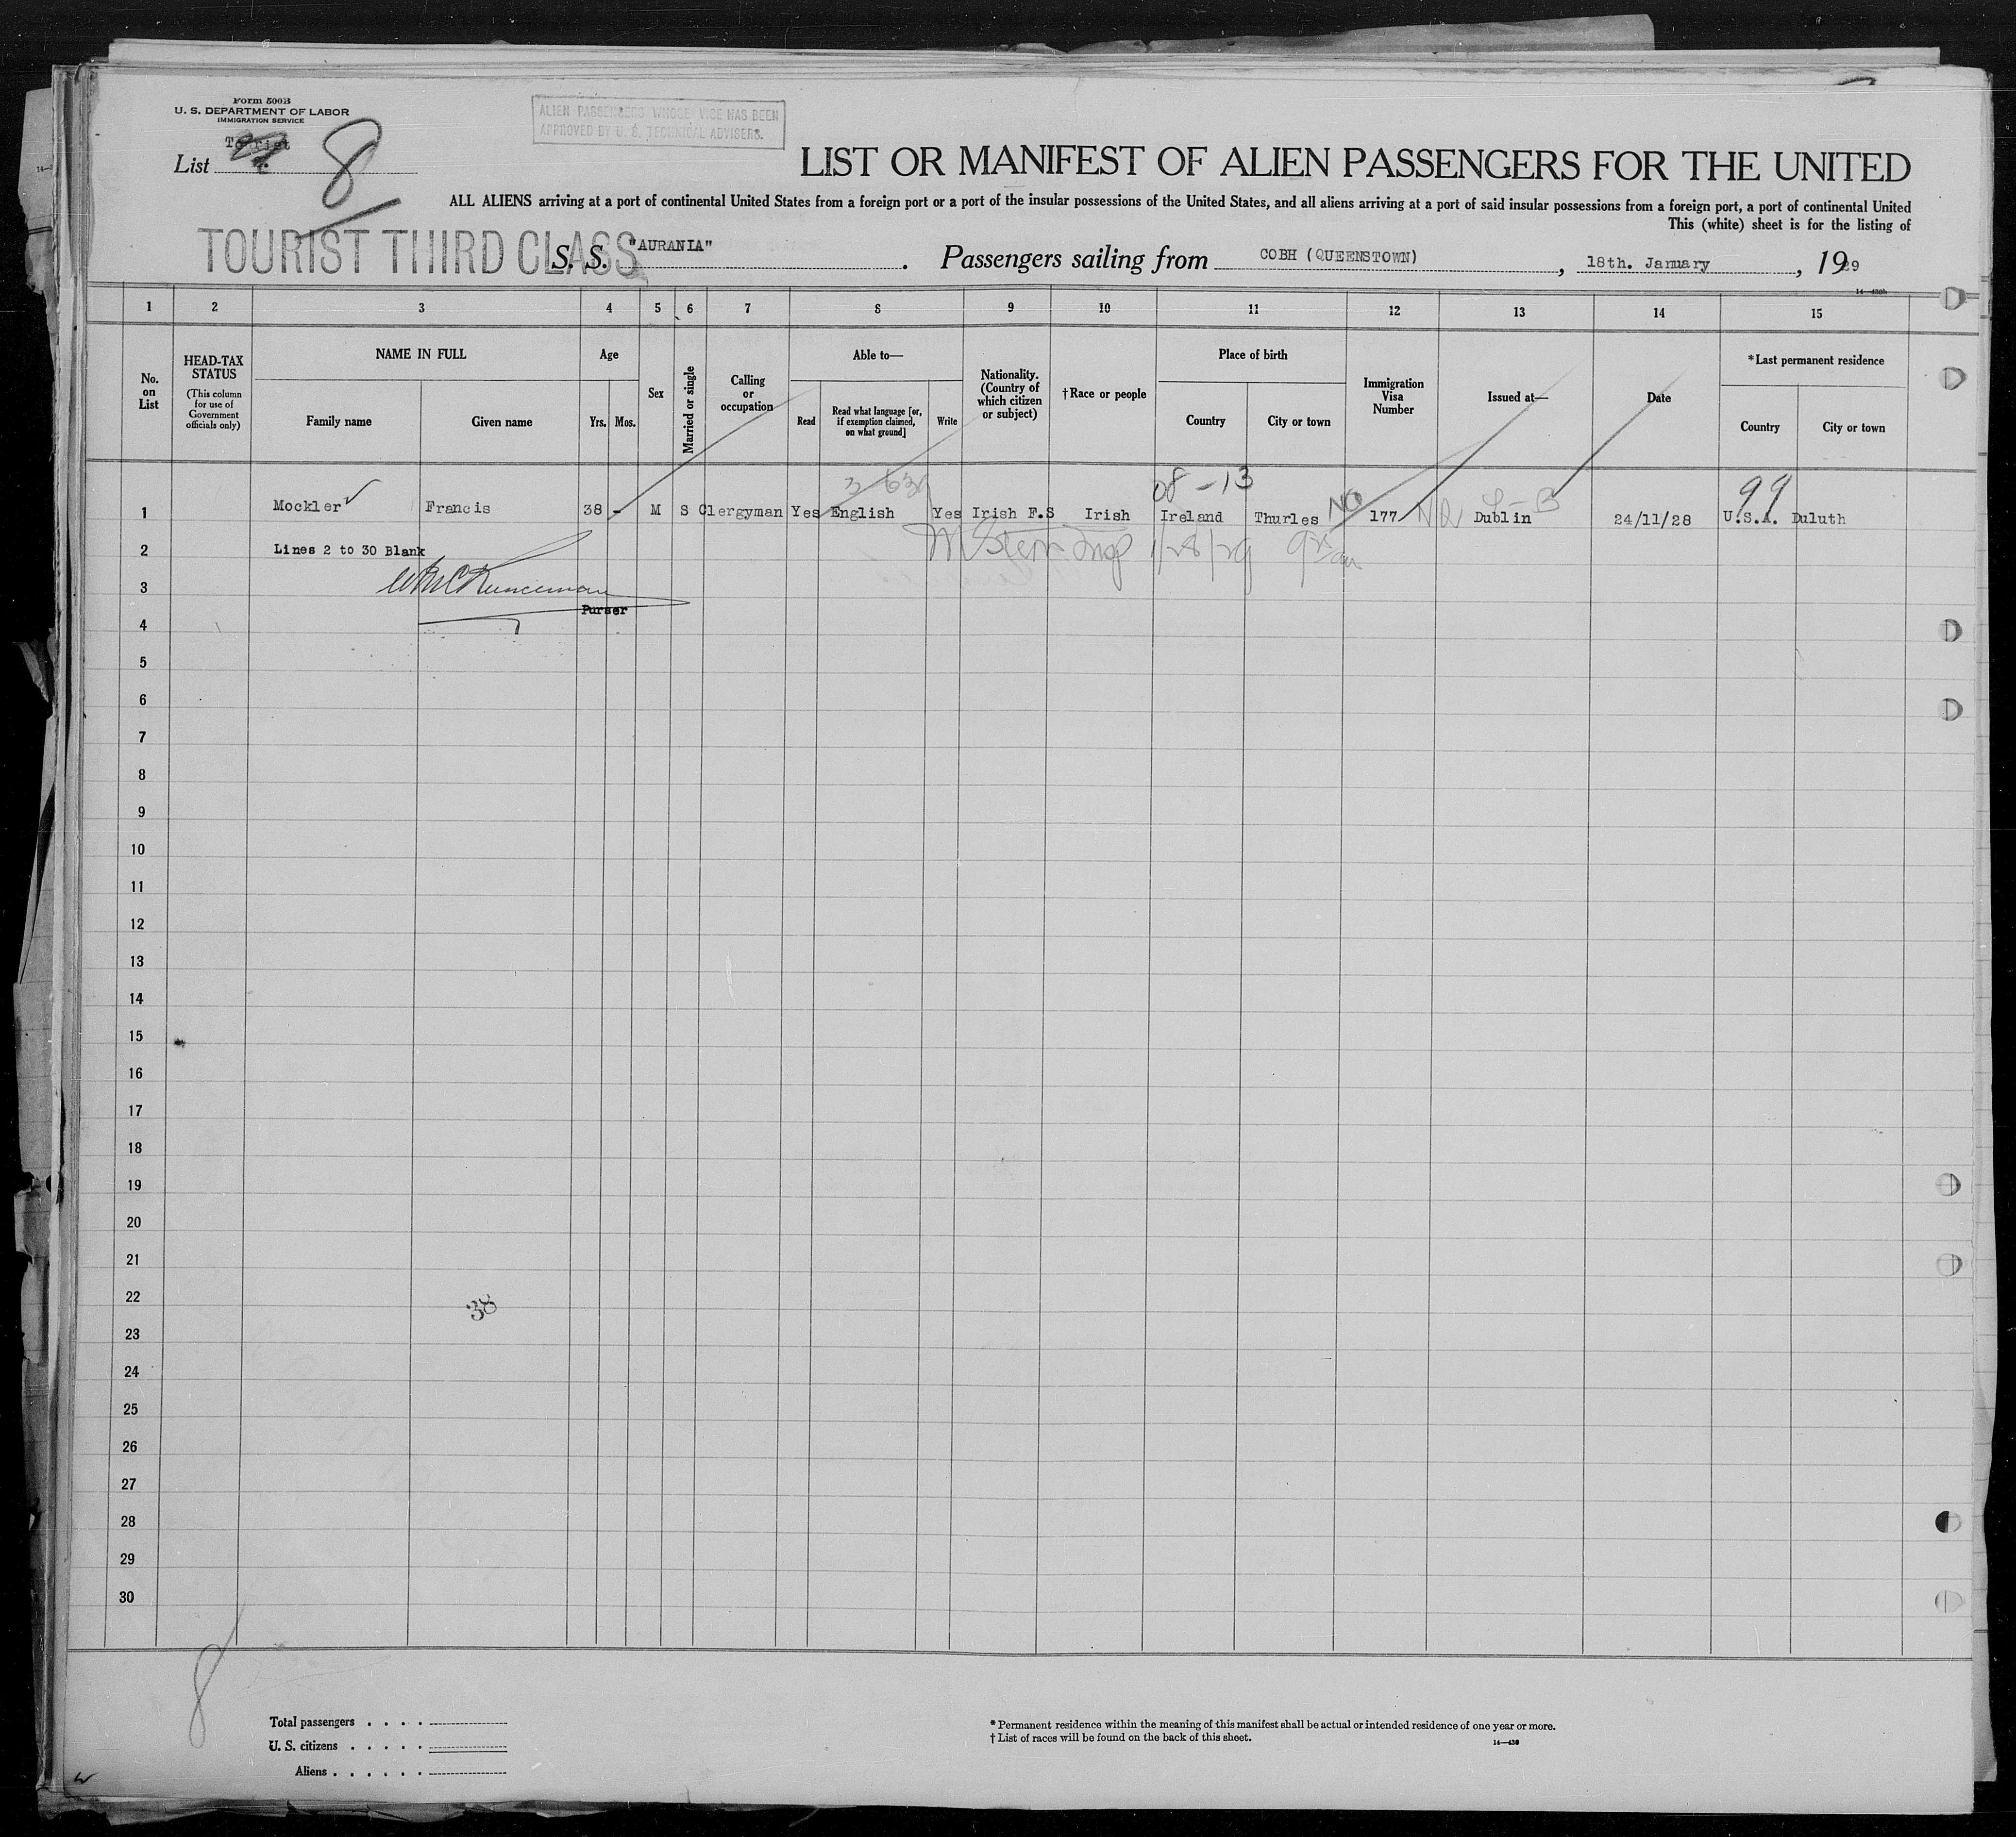 Form 500B
U. S. DEPARTMENT OF LABOR
IMMIGRATION SERVICE
Tourist
List
8
ALIEN PASSENGERS WHOSE VICE HAS BEEN
APPROVED BY U. S. TECHNICAL ADVISERS.
LIST OR MANIFEST OF ALIEN PASSENGERS FOR THE UNITED
ALL ALIENS arriving at a port of continental United States from a foreign port or a port of the insular possessions of the United States, and all aliens arriving at a port of said insular possessions from a foreign port, a port of continental United
This (white) sheet is for the listing of
TOURIST THIRD CLASS
S. S. "AURANIA". Passengers sailing from COBH (QUEENSTOWN), 18th. January, 1929
1 2 3 4 5 6 7 8 9 10 11 12 13 14 15
No. on List
HEAD-TAX STATUS
(This column for use of Government officials only)
NAME IN FULL
Family name
Given name
Age
Yrs. Mos.
Sex
Married or single
Calling or occupation
Able to—
Read
Read what language [or, if exemption claimed, on what ground]
Write
Nationality. (Country of which citizen or subject)
†Race or people
Place of birth
Country
City or town
Immigration Visa Number
Issued at—
Date
*Last permanent residence
Country
City or town
08-13
99
1 Mockler Francis 38 - M S Clergyman Yes English Yes Irish F.S Irish Ireland Thurles NQ 177 NQ Dublin 24/11/28 U.S.A. Duluth
2 Lines 2 to 30 Blank
1/28/29
3
Purser
4
5
6
7
8
9
10
11
12
13
14
15
16
17
18
19
20
21
22
38
23
24
25
26
27
28
29
30
8
Total passengers . . . .
U. S. citizens . . . . .
Aliens . . . . . .
* Permanent residence within the meaning of this manifest shall be actual or intended residence of one year or more.
† List of races will be found on the back of this sheet.
14—430